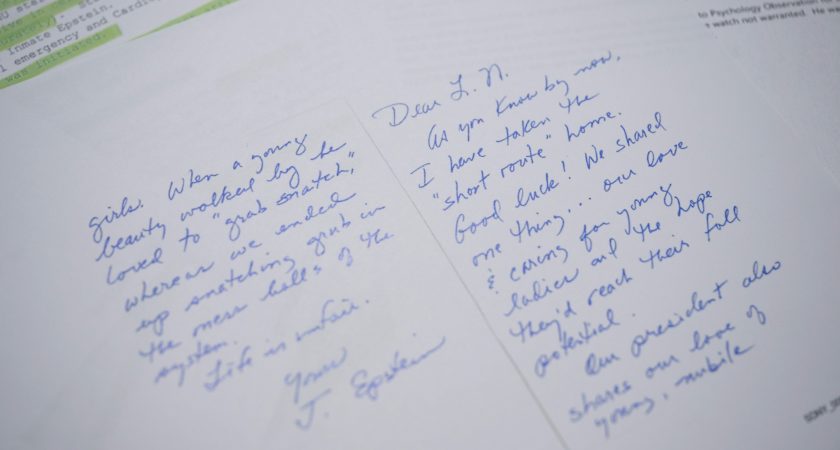 inmate Epstein,
emergency and
was initiated.
to Psychology Observation
watch not warranted. He
Dear L. N.
As you know by now,
I have taken the
"short route" home.
Good luck! We shared
one thing... our love
& caring for young
ladies and the hope
they'd reach their full
potential.
Our president also
shares our love of
young, nubile
girls. When a young
beauty walked by he
loved to "grab snatch,"
whereas we ended
up snatching grub in
the mess halls of the
system.
Life is unfair.
Yours
J. Epstein